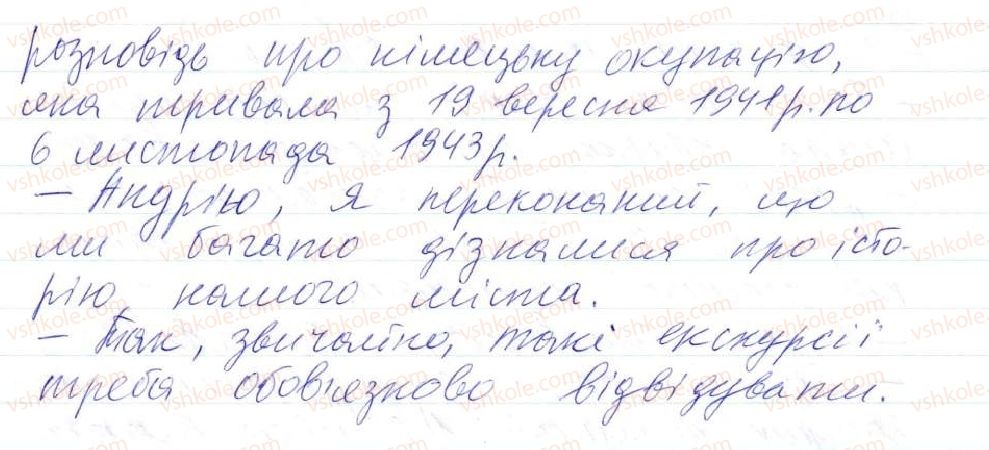 розповідь про німецьку окупацію,
яка тривала з 19 вересня 1941р. по
6 листопада 1943р.
– Андрію, я переконаний, що
ми багато дізналися про істо-
рію нашого міста.
– Так, звичайно, такі екскурсії
треба обов'язково відвідувати.